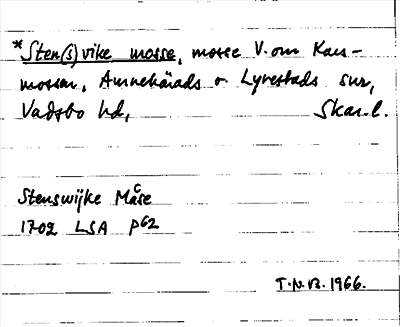 *Sten(s)vike mosse, mosse V. om Kas-
mossen, Amnehärads o. Lyrestads snr,
Vadsbo hd, Skar.l.
Stenswijke Måse
1702 LSA P62
T.N.B. 1966.